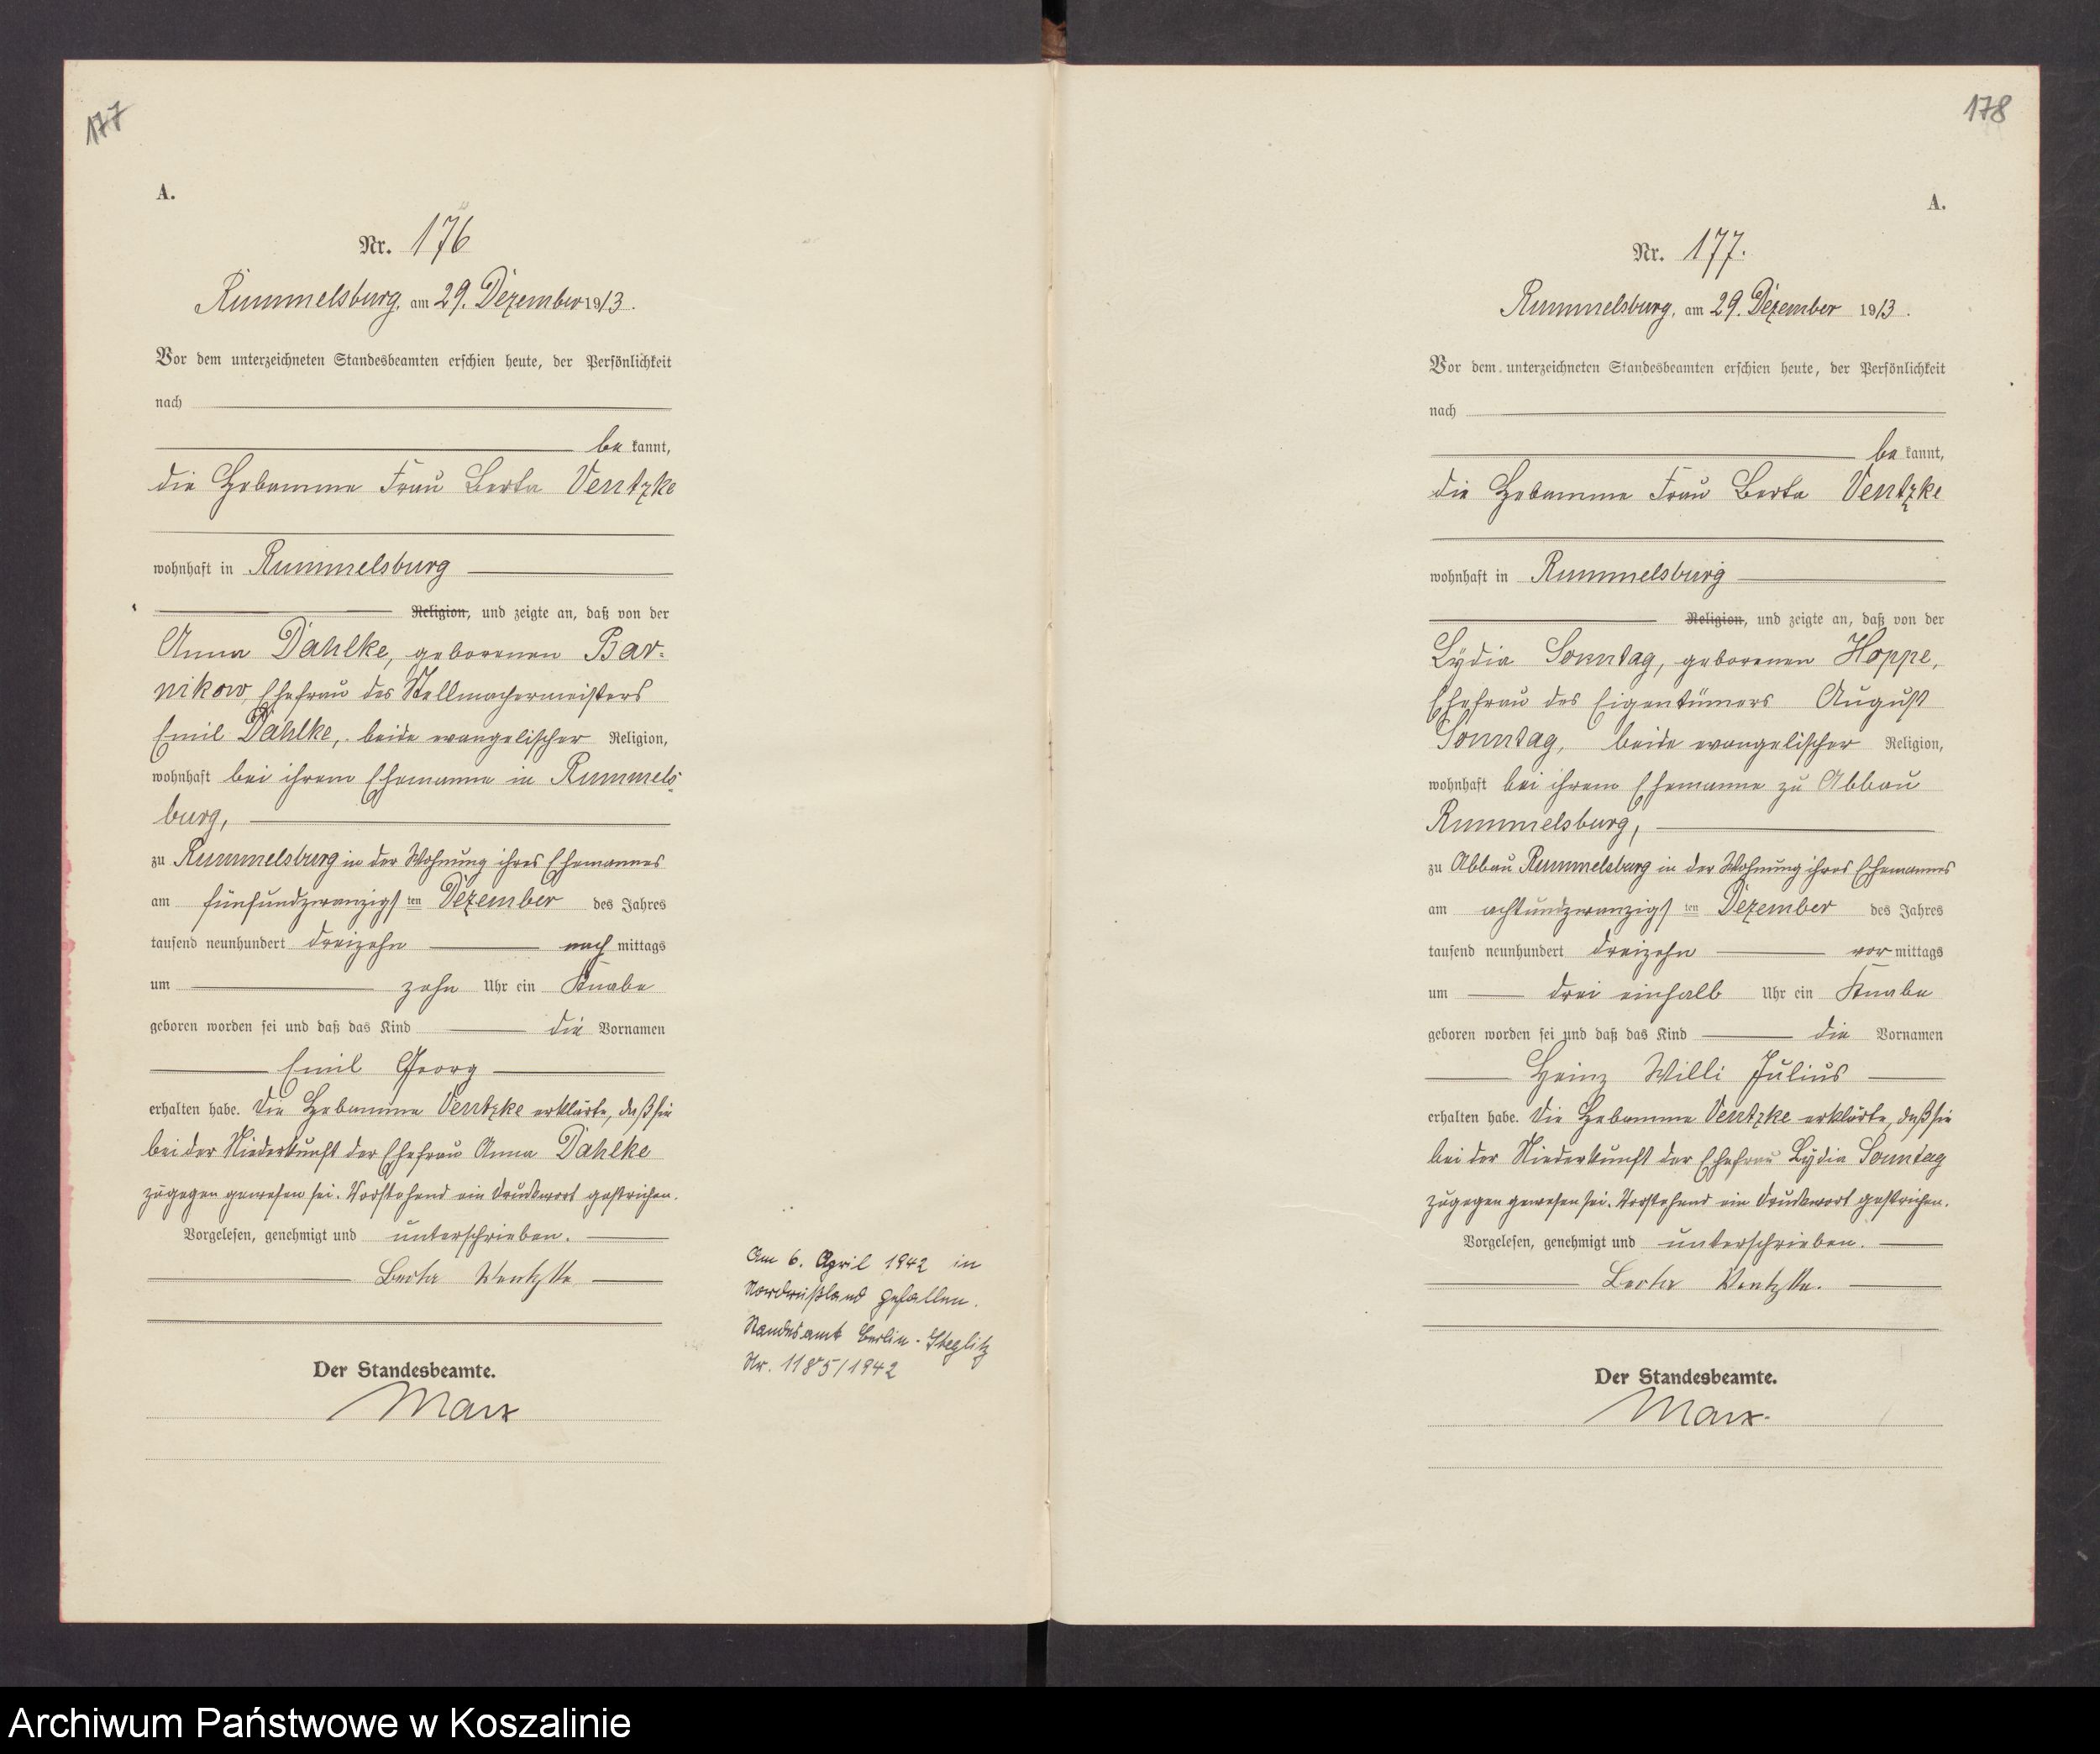 177
A.
Nr. 176
Rummelsburg, am 29. Dezember 1913.
Vor dem unterzeichneten Standesbeamten erschien heute, der Persönlichkeit
nach
be kannt,
die Hebamme Frau Berta Ventzke
wohnhaft in Rummelsburg
Religion, und zeigte an, daß von der
Anna Dahlke, geborenen Bar-
nikow, Ehefrau des Stellmachermeisters
Emil Dahlke, beide evangelischer Religion,
wohnhaft bei ihrem Ehemanne in Rummels-
burg,
zu Rummelsburg in der Wohnung ihres Ehemannes
am fünfundzwanzigsten Dezember des Jahres
tausend neunhundert dreizehn nach mittags
um zehn Uhr ein Knabe
geboren worden sei und daß das Kind die Vornamen
Emil Georg
erhalten habe. Die Hebamme Ventzke erklärte, daß sie
bei der Niederkunft der Ehefrau Anna Dahlke
zugegen gewesen sei. Vorstehend ein Druckwort gestrichen.
Vorgelesen, genehmigt und unterschrieben.
Berta Ventzke
Der Standesbeamte.
Marx
Am 6. April 1942 in
Nordrußland gefallen.
Standesamt Berlin-Steglitz
Nr. 1185/1942
178
A.
Nr. 177.
Rummelsburg, am 29. Dezember 1913.
Vor dem unterzeichneten Standesbeamten erschien heute, der Persönlichkeit
nach
be kannt,
die Hebamme Frau Berta Ventzke
wohnhaft in Rummelsburg
Religion, und zeigte an, daß von der
Lydia Sonntag, geborenen Hoppe,
Ehefrau des Eigentümers August
Sonntag, beide evangelischer Religion,
wohnhaft bei ihrem Ehemanne zu Abbau
Rummelsburg,
zu Abbau Rummelsburg in der Wohnung ihres Ehemannes
am achtundzwanzigsten Dezember des Jahres
tausend neunhundert dreizehn vor mittags
um drei einhalb Uhr ein Knabe
geboren worden sei und daß das Kind die Vornamen
Heinz Willi Julius
erhalten habe. Die Hebamme Ventzke erklärte, daß sie
bei der Niederkunft der Ehefrau Lydia Sonntag
zugegen gewesen sei. Vorstehend ein Druckwort gestrichen.
Vorgelesen, genehmigt und unterschrieben.
Berta Ventzke.
Der Standesbeamte.
Marx.
Archiwum Państwowe w Koszalinie